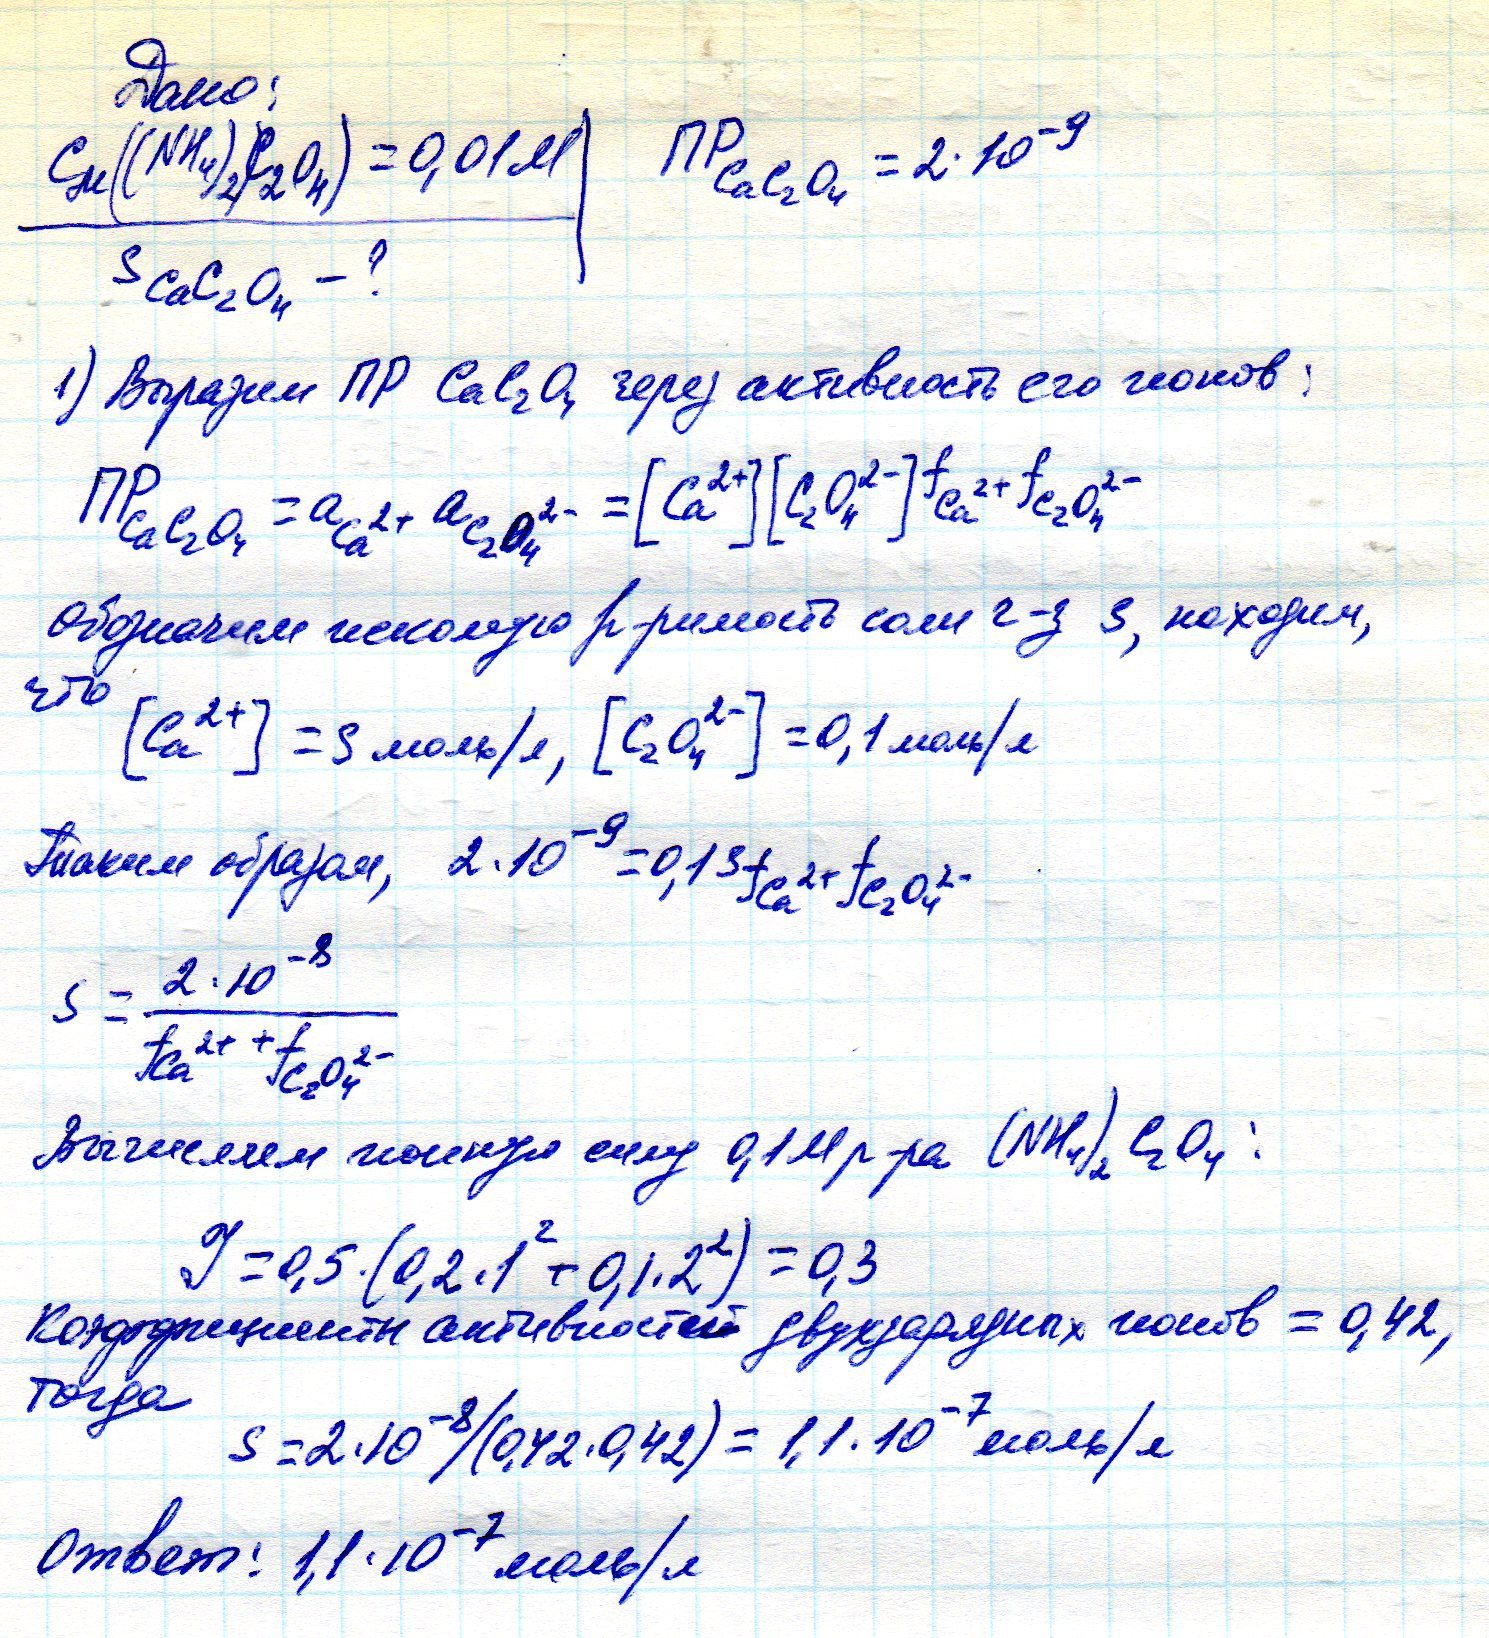 Дано:
Cм((NH₄)₂C₂O₄) = 0,01М | ПР CaC₂O₄ = 2·10⁻⁹
S CaC₂O₄ – ?
1) Выразим ПР CaC₂O₄ через активность его ионов:
ПР CaC₂O₄ = a Ca²⁺ a C₂O₄²⁻ = [Ca²⁺][C₂O₄²⁻] f Ca²⁺ f C₂O₄²⁻
обозначим искомую р-римость соли ч-з S, находим,
что
[Ca²⁺] = S моль/л, [C₂O₄²⁻] = 0,1 моль/л
Таким образом, 2·10⁻⁹ = 0,1S f Ca²⁺ f C₂O₄²⁻
S = 2·10⁻⁸ / f Ca²⁺ + f C₂O₄²⁻
Вычисляем ионную силу 0,1М р-ра (NH₄)₂C₂O₄:
J = 0,5·(0,2·1² + 0,1·2²) = 0,3
Коэффициенты активностей двухзарядных ионов = 0,42,
тогда
S = 2·10⁻⁸/(0,42·0,42) = 1,1·10⁻⁷ моль/л
Ответ: 1,1·10⁻⁷ моль/л